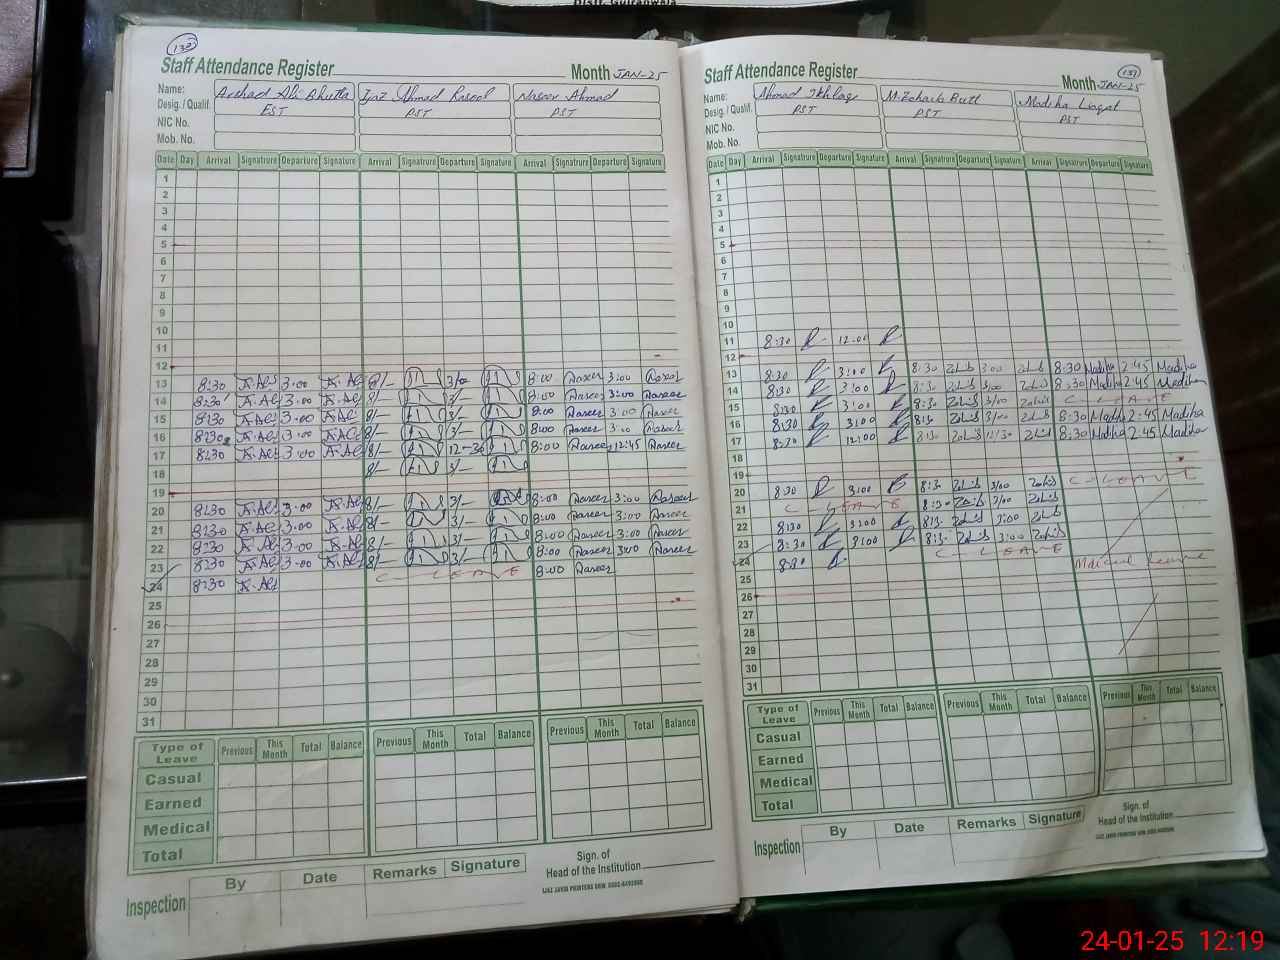 Distt. Gujranwala
130
Staff Attendance Register Month JAN-25
Name: Arshad Ali Bhutta Ijaz Ahmad Rasool Naseer Ahmad
Desig. / Qualif. EST PST PST
NIC No.
Mob. No.
Date Day Arrival Signature Departure Signature Arrival Signature Departure Signature Arrival Signature Departure Signature
1
2
3
4
5
6
7
8
9
10
11
12
13 8:30 3:00 8/- 3/00 8:00 Naseer 3:00 Naseer
14 8:30 3:00 8/- 3/- 8:00 Naseer 3:00 Naseer
15 8:30 3:00 8/- 3/- 8:00 Naseer 3:00 Naseer
16 8:30 3:00 8/- 3/- 8:00 Naseer 3:00 Naseer
17 8:30 3:00 8/- 12-30 8:00 Naseer 12:45 Naseer
18 8/- 3/-
19
20 8:30 3:00 8/- 3/- 8:00 Naseer 3:00 Naseer
21 8:30 3:00 8/- 3/- 8:00 Naseer 3:00 Naseer
22 8:30 3:00 8/- 3/- 8:00 Naseer 3:00 Naseer
23 8:30 3:00 8/- 3/- 8:00 Naseer 3:00 Naseer
24 8:30 C - LEAVE 8:00 Naseer
25
26
27
28
29
30
31
Type of Leave Previous This Month Total Balance Previous This Month Total Balance Previous This Month Total Balance
Casual
Earned
Medical
Total
Inspection By Date Remarks Signature Sign. of
Head of the Institution
131
Staff Attendance Register Month JAN-25
Name: Ahmad Ikhlaq M. Zohaib Butt Madiha Liaqat
Desig. / Qualif. PST PST PST
NIC No.
Mob. No.
Date Day Arrival Signature Departure Signature Arrival Signature Departure Signature Arrival Signature Departure Signature
1
2
3
4
5
6
7
8
9
10
11 8:30 12:00
12
13 8:30 3:00 8:30 Zohib 3:00 Zohib 8:30 Madiha 2:45 Madiha
14 8:30 3:00 8:30 Zohib 3/00 Zohib 8:30 Madiha 2:45 Madiha
15 8:30 3:00 8:30 Zohib 3/00 Zohib C LEAVE
16 8:30 3:00 8:30 Zohib 3/00 Zohib 8:30 Madiha 2:45 Madiha
17 8:30 12:00 8:30 Zohib 12/30 Zohib 8:30 Madiha 2:45 Madiha
18
19
20 8:30 3:00 8:30 Zohib 3/00 Zohib C-LEAVE
21 C - LEAVE 8:30 Zohib 3/00 Zohib
22 8:30 3:00 8:30 Zohib 3:00 Zohib
23 8:30 3:00 8:30 Zohib 3:00 Zohib
24 8:30 C-LEAVE
25
26
27
28
29
30
31
Type of Leave Previous This Month Total Balance Previous This Month Total Balance Previous This Month Total Balance
Casual
Earned
Medical
Total
Inspection By Date Remarks Signature Sign. of
Head of the Institution
24-01-25 12:19